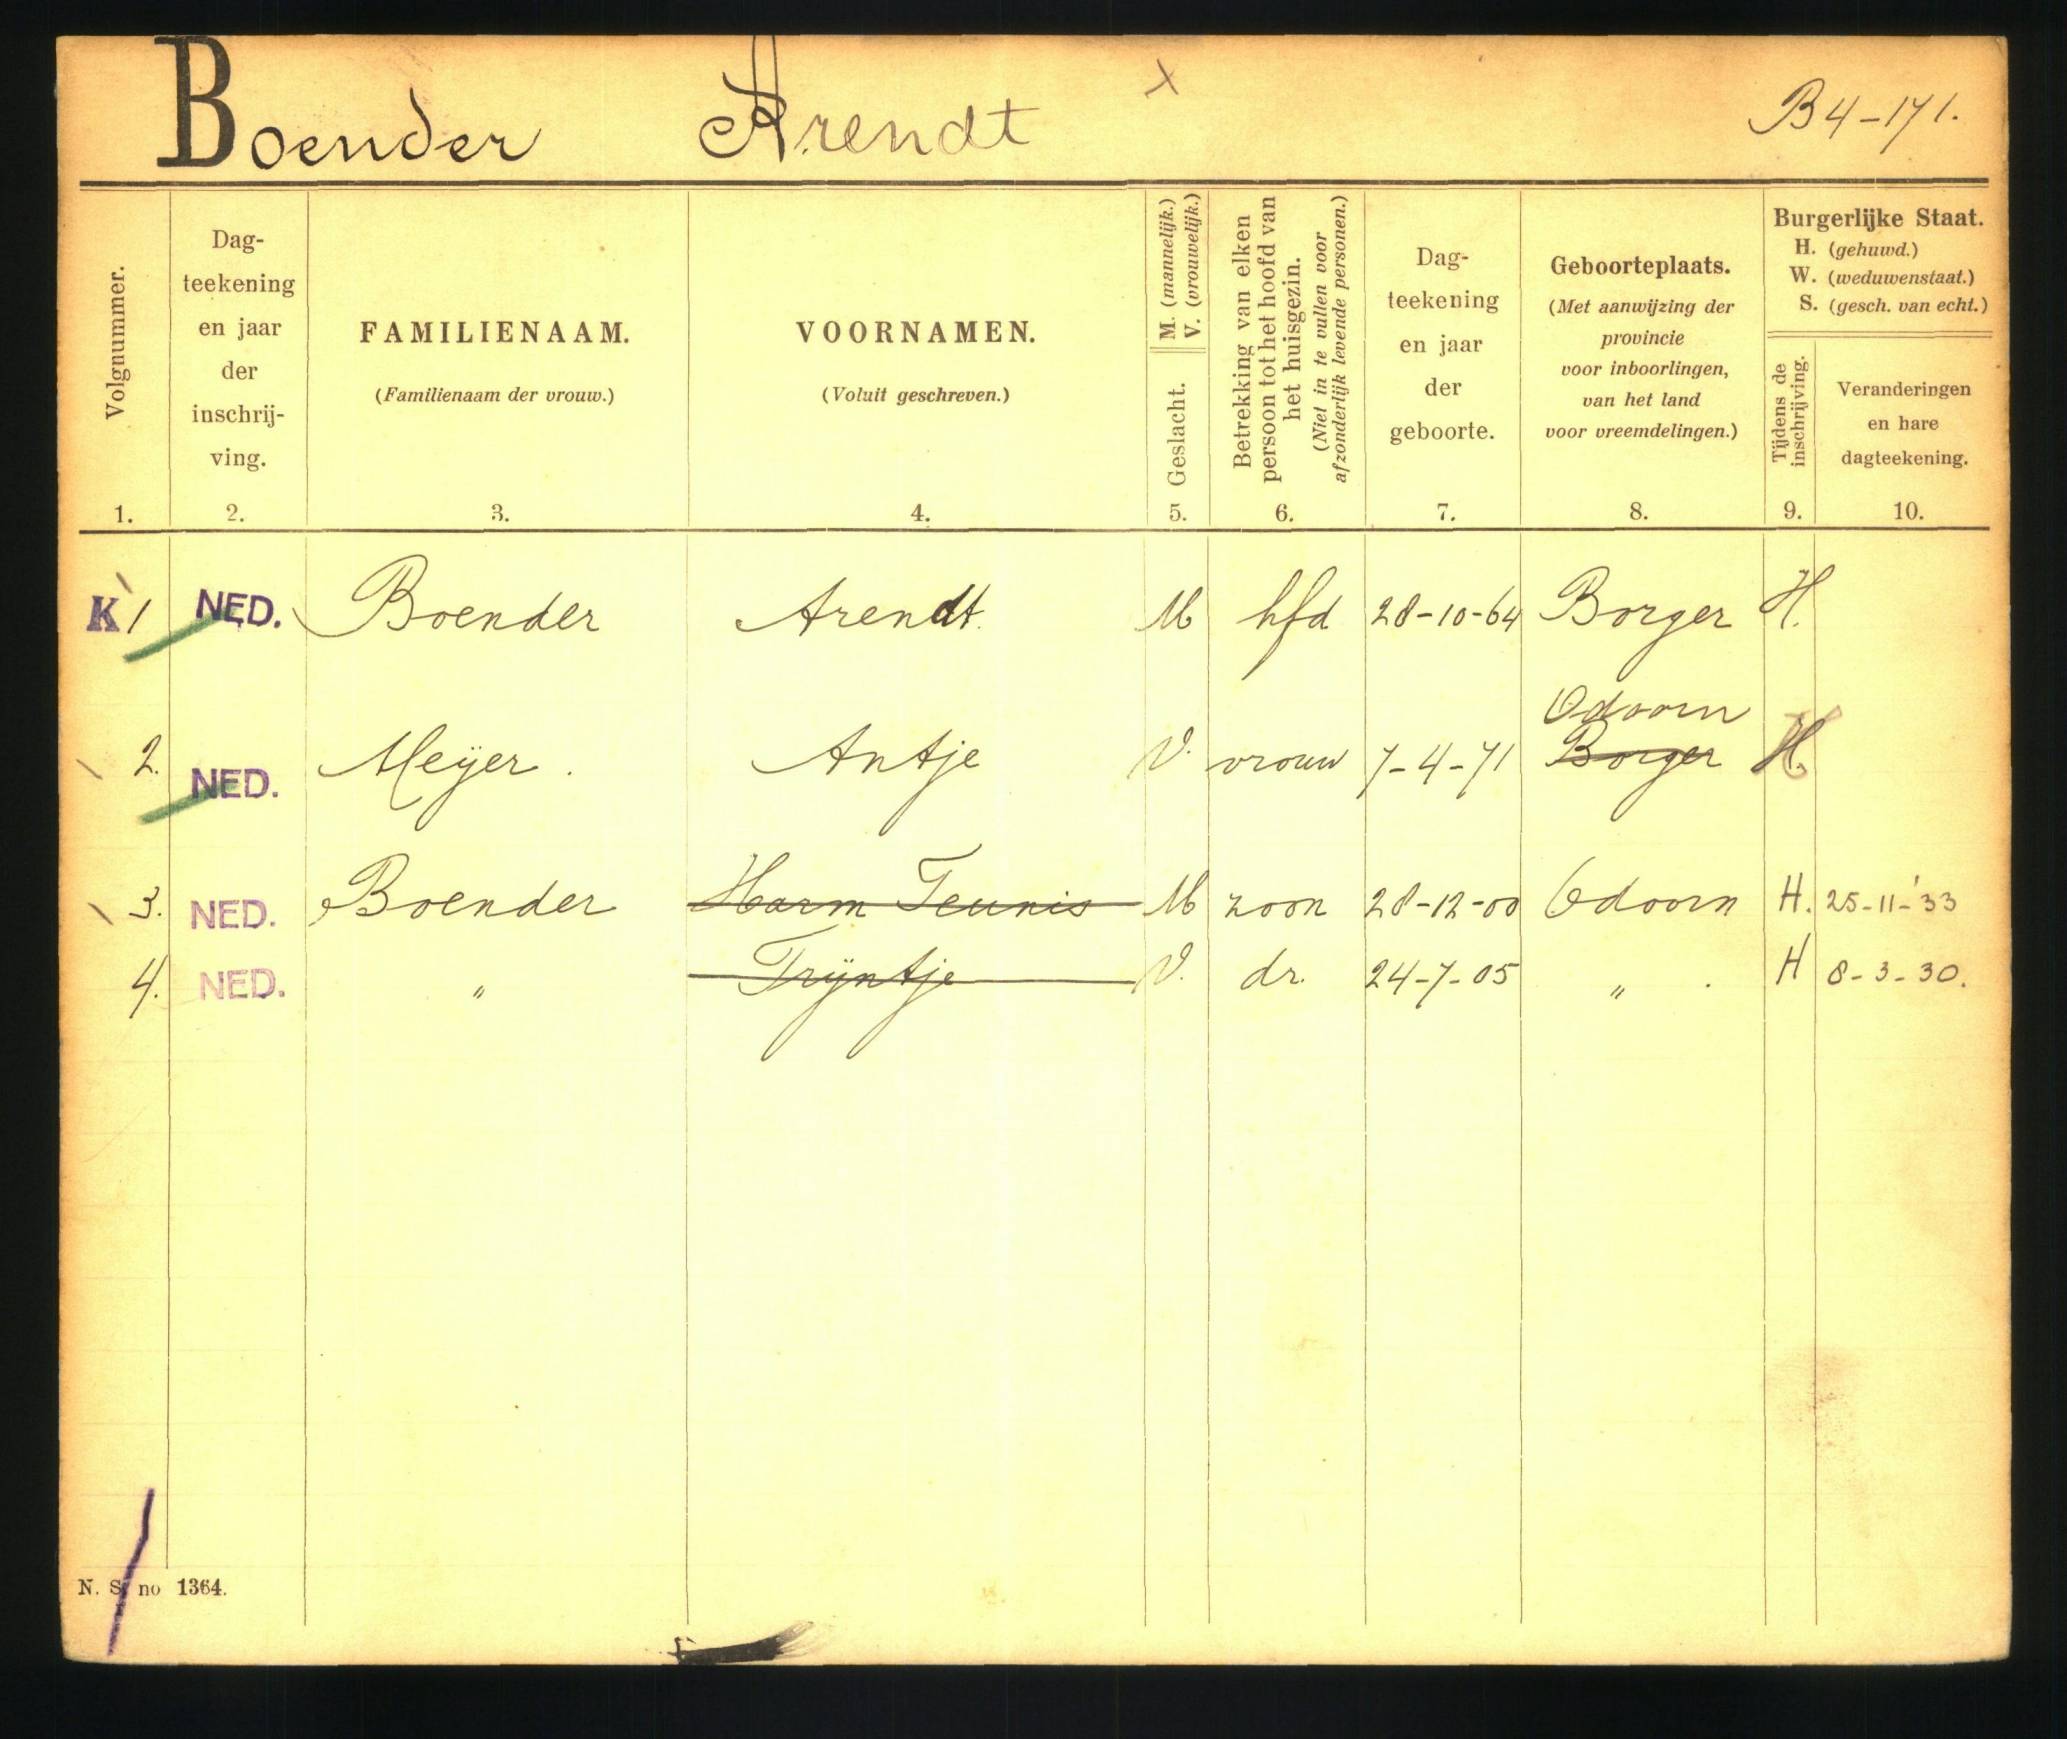 Boender Arendt x B4-171.
Volgnummer.
Dag-
teekening
en jaar
der
inschrij-
ving.
FAMILIENAAM.
(Familienaam der vrouw.)
VOORNAMEN.
(Voluit geschreven.)
M. (mannelijk.)
V. (vrouwelijk.)
Geslacht.
Betrekking van elken
persoon tot het hoofd van
het huisgezin.
(Niet in te vullen voor
afzonderlijk levende personen.)
Dag-
teekening
en jaar
der
geboorte.
Geboorteplaats.
(Met aanwijzing der
provincie
voor inboorlingen,
van het land
voor vreemdelingen.)
Burgerlijke Staat.
H. (gehuwd.)
W. (weduwenstaat.)
S. (gesch. van echt.)
Tijdens de
inschrijving.
Veranderingen
en hare
dagteekening.
1. 2. 3. 4. 5. 6. 7. 8. 9. 10.
K 1 NED. Boender Arendt. M hfd 28-10-64 Borger H.
Odoorn
2. NED. Meijer. Antje V. vrouw 7-4-71 Borger H.
3. NED. Boender Harm Teunis M zoon 28-12-00 Odoorn H. 25-11-'33
4. NED. " Trijntje V. dr. 24-7-05 " . H 8-3-30.
N. S. no 1364.